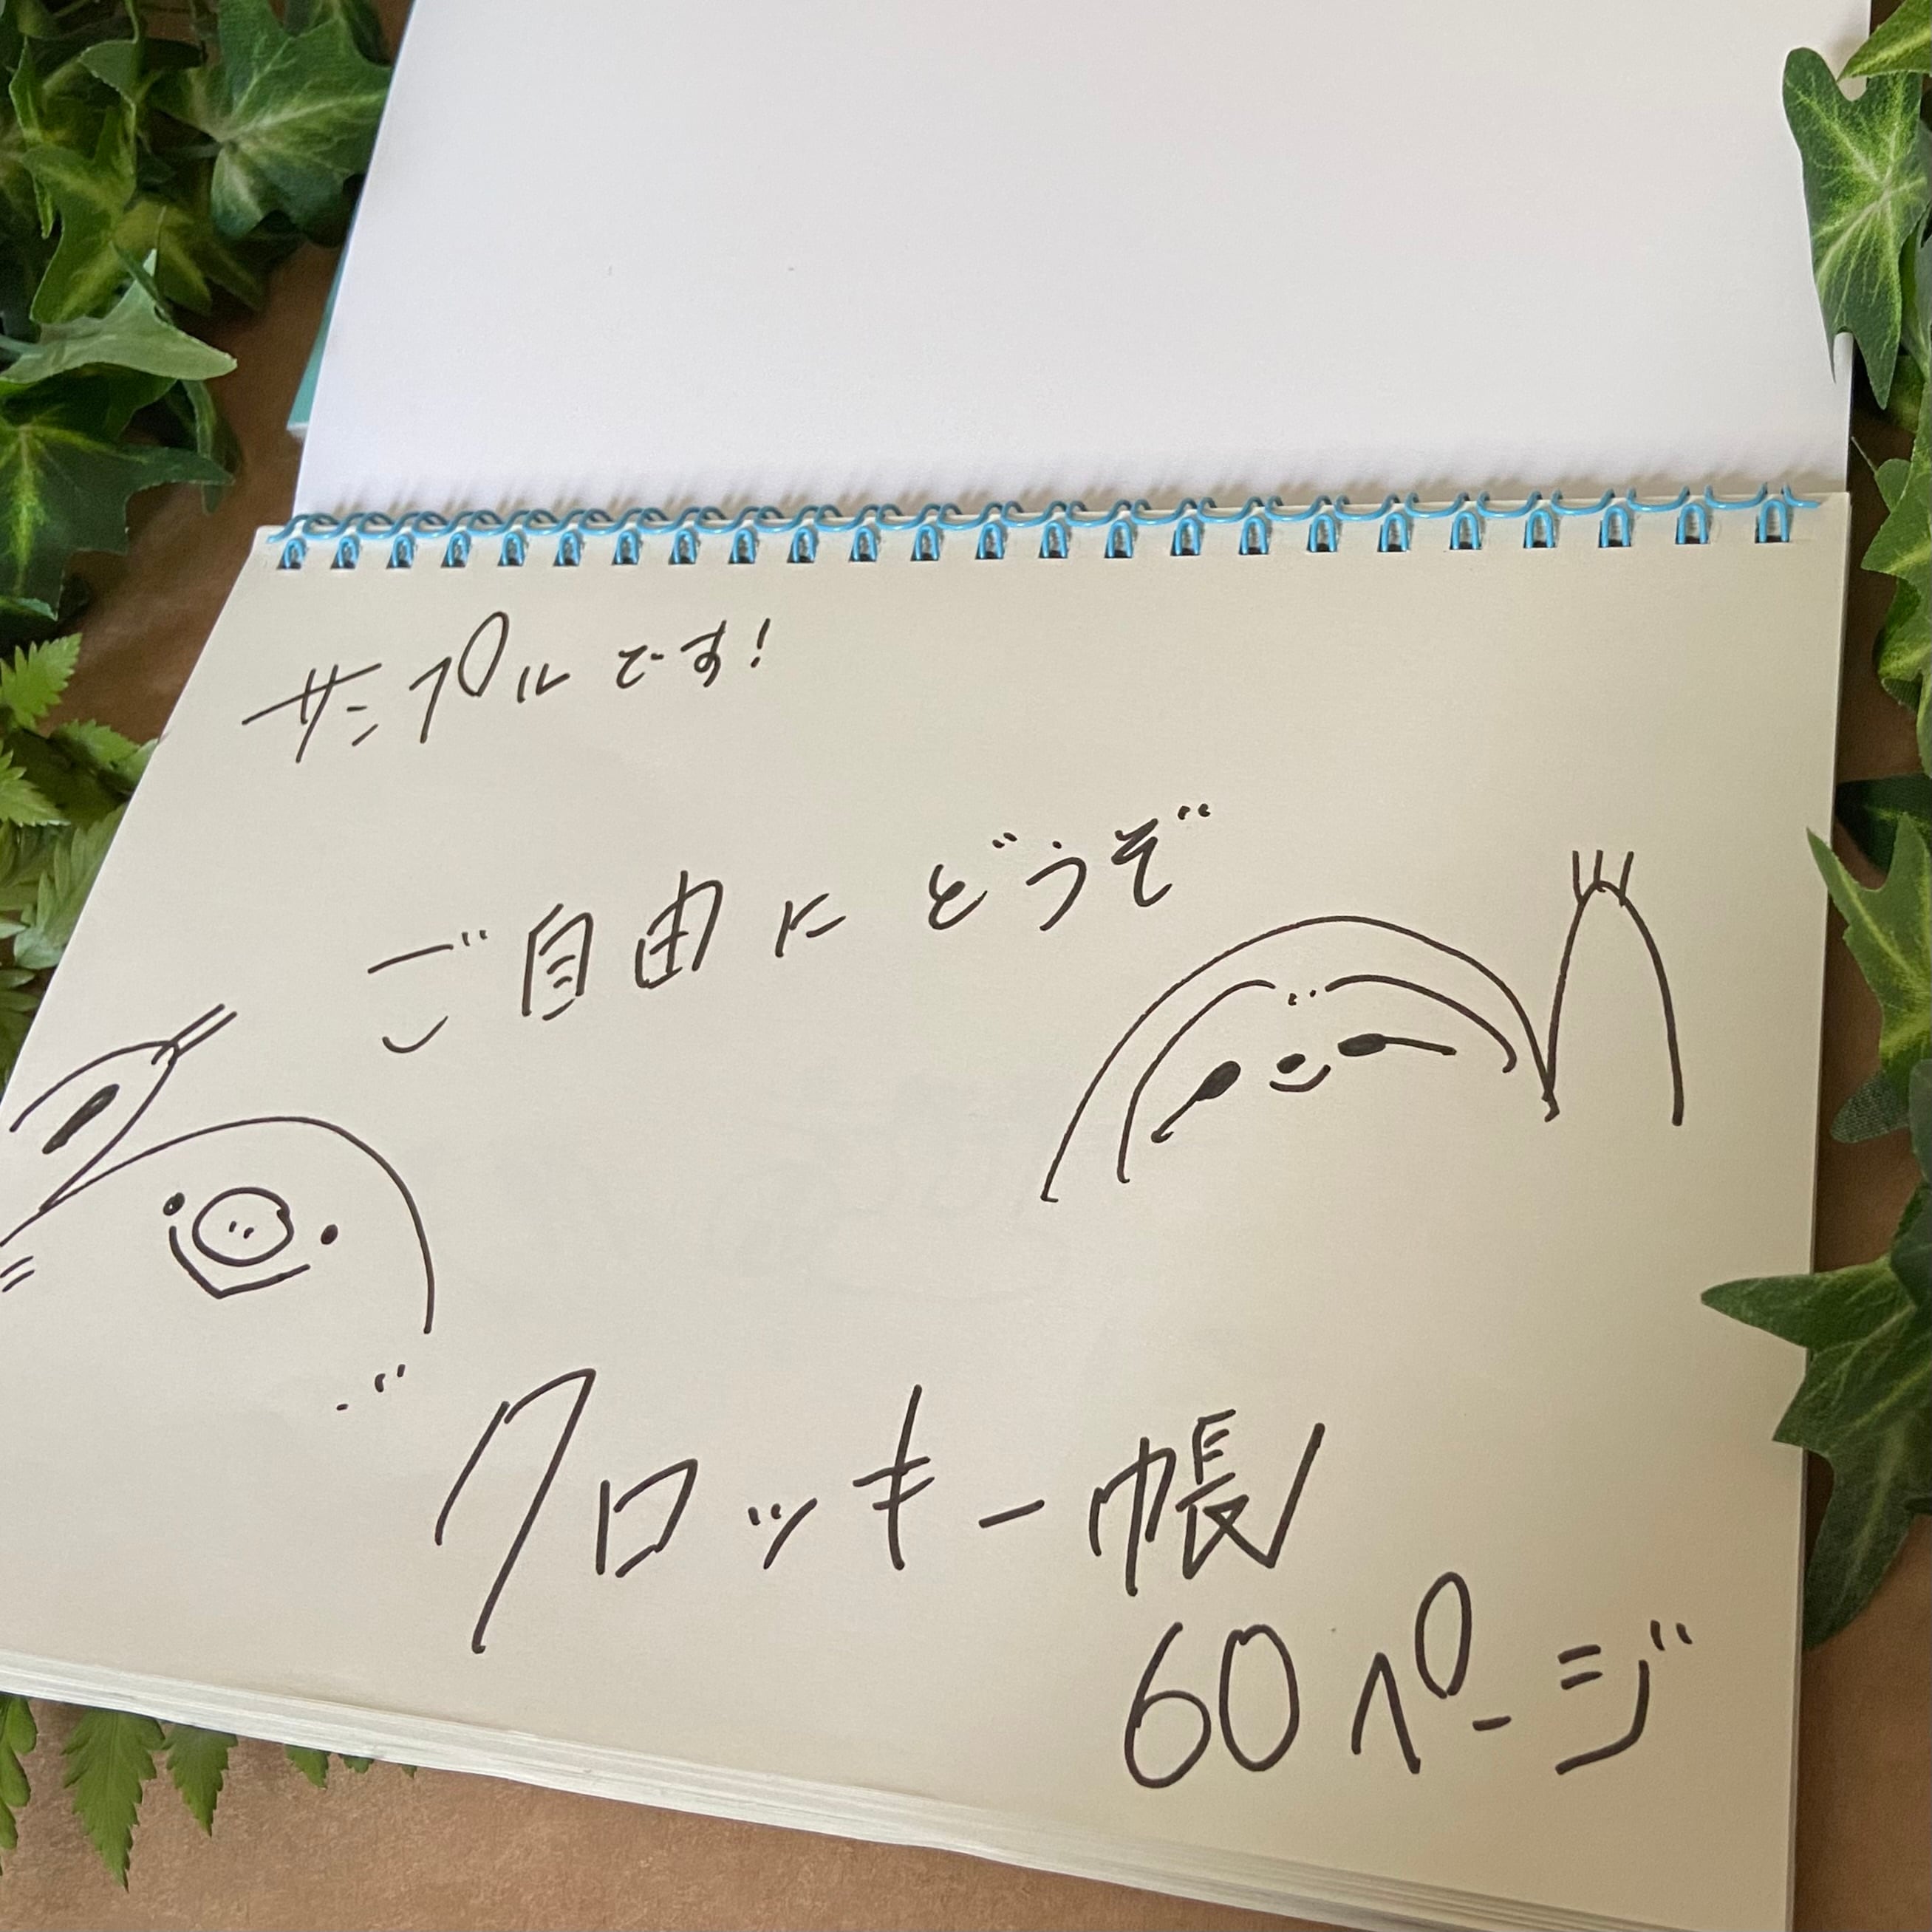 サンプルです!
ご自由にどうぞ
クロッキー帳
60ページ